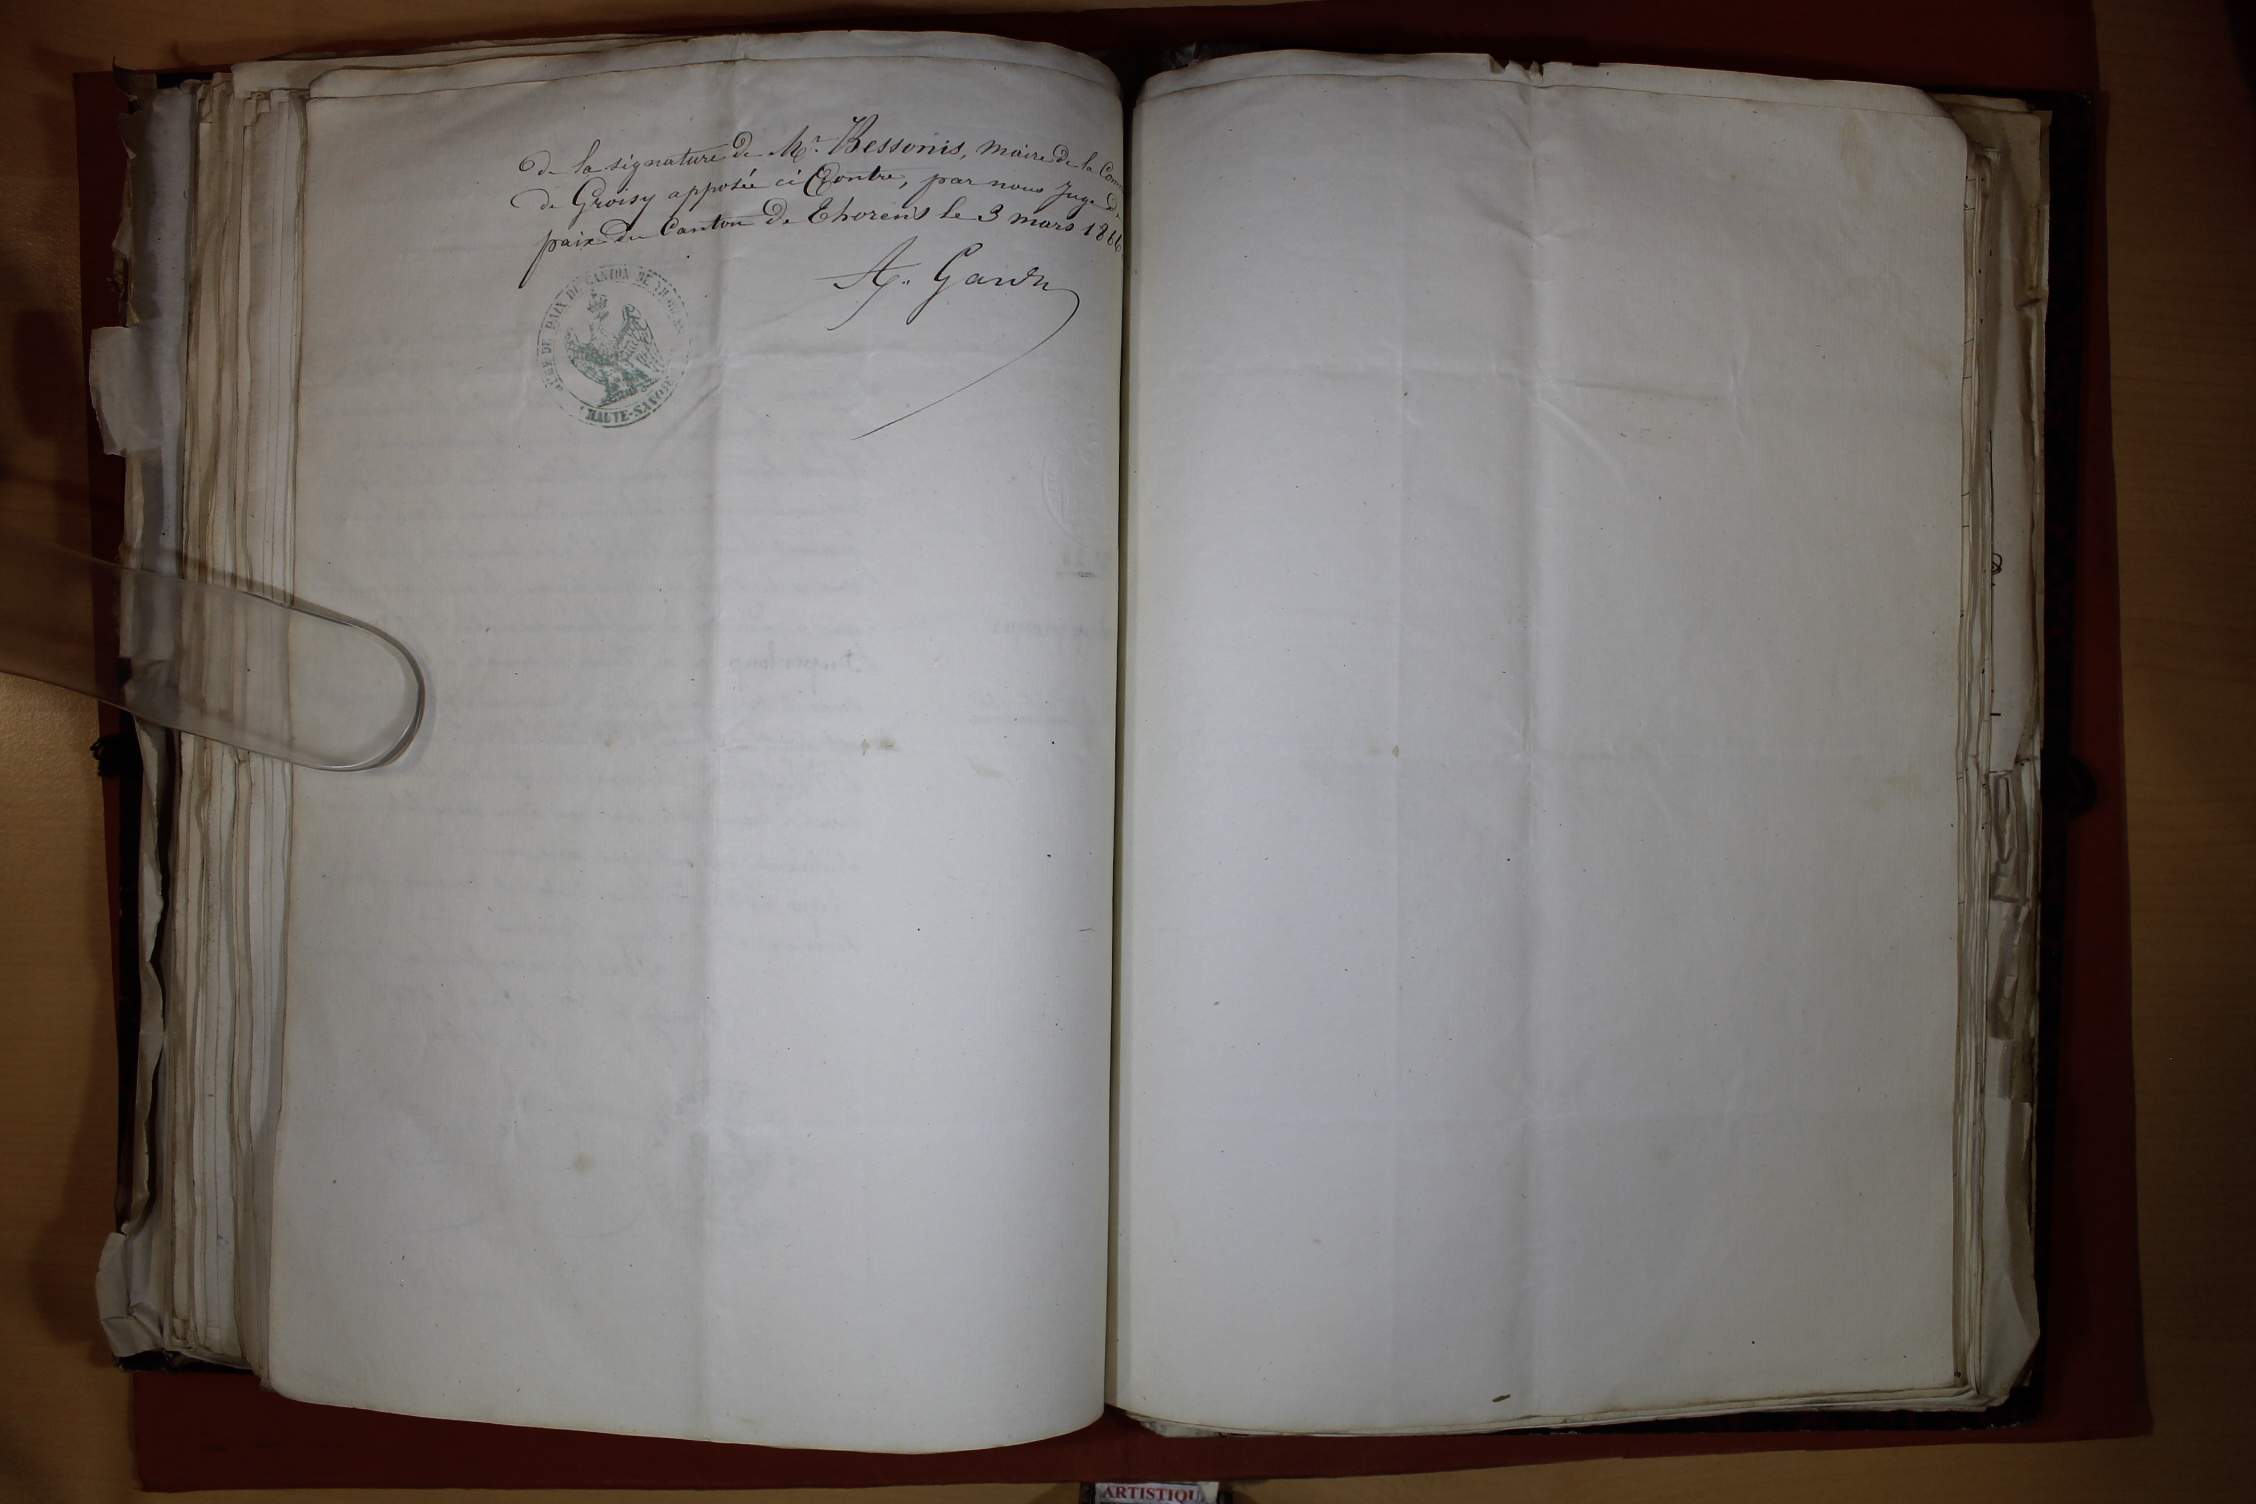 de la signature de Mr. Bessonis, maire de la Comm
de Groisy apposée ci Contre, par nous Juge de
paix du Canton de Thorens le 3 mars 1866
A. Gardn
DE PAIX DU CANTON DE
HAUTE-SAVOIE
ARTISTIQU